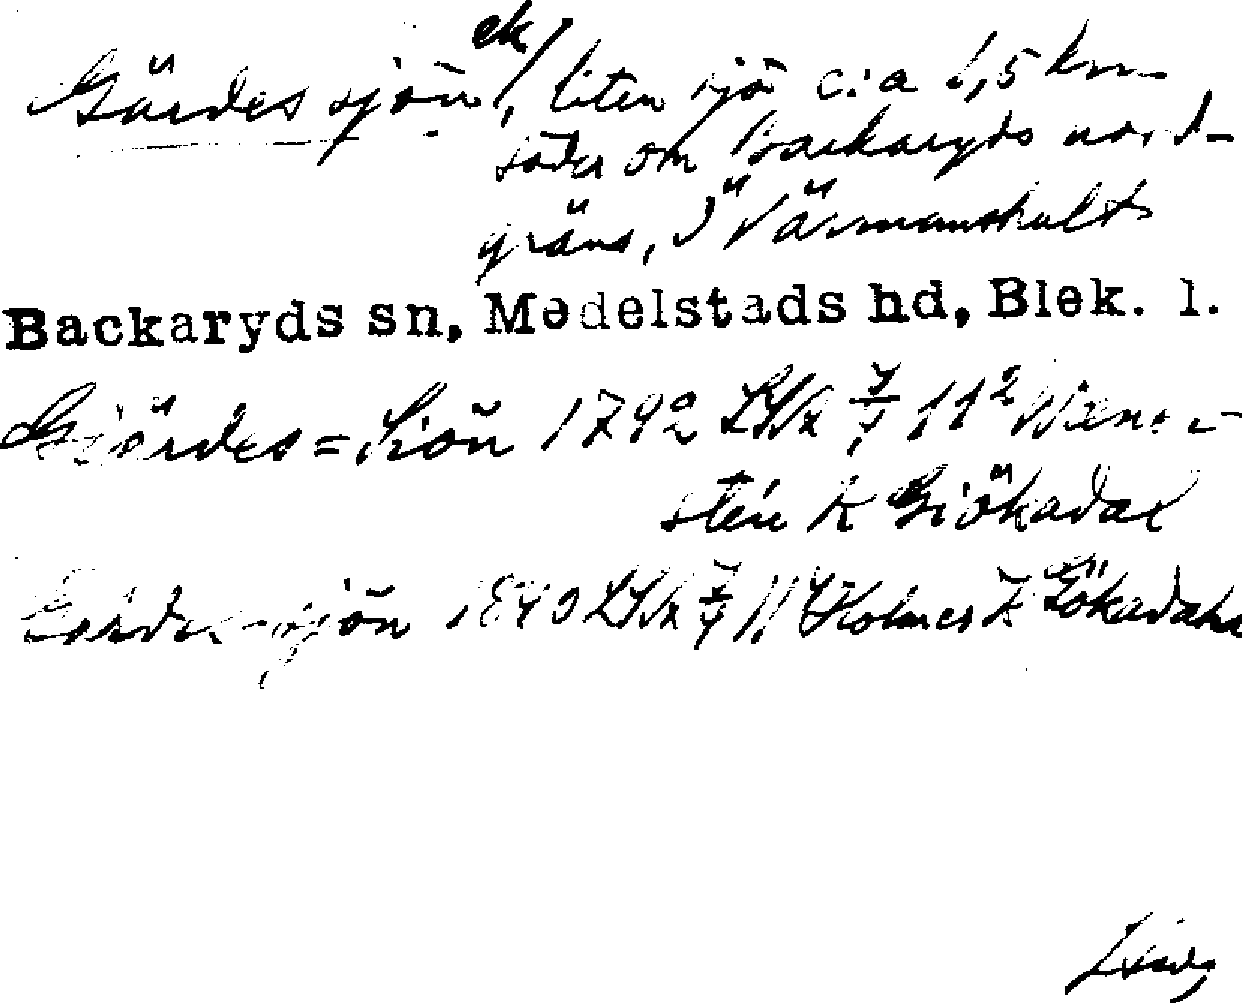 Gärdessjön ek/, liten sjö c:a 1,5 km
söder om Backaryds nord-
gräns, Ö Värmanshult
Backaryds sn, Medelstads hd, Blek. l.
Giärdes=Siön 1792 LSk 7/7 11²
stén K Giökadal
sjön 1840 LSk 7/7 11 Holmes K Gökadahl